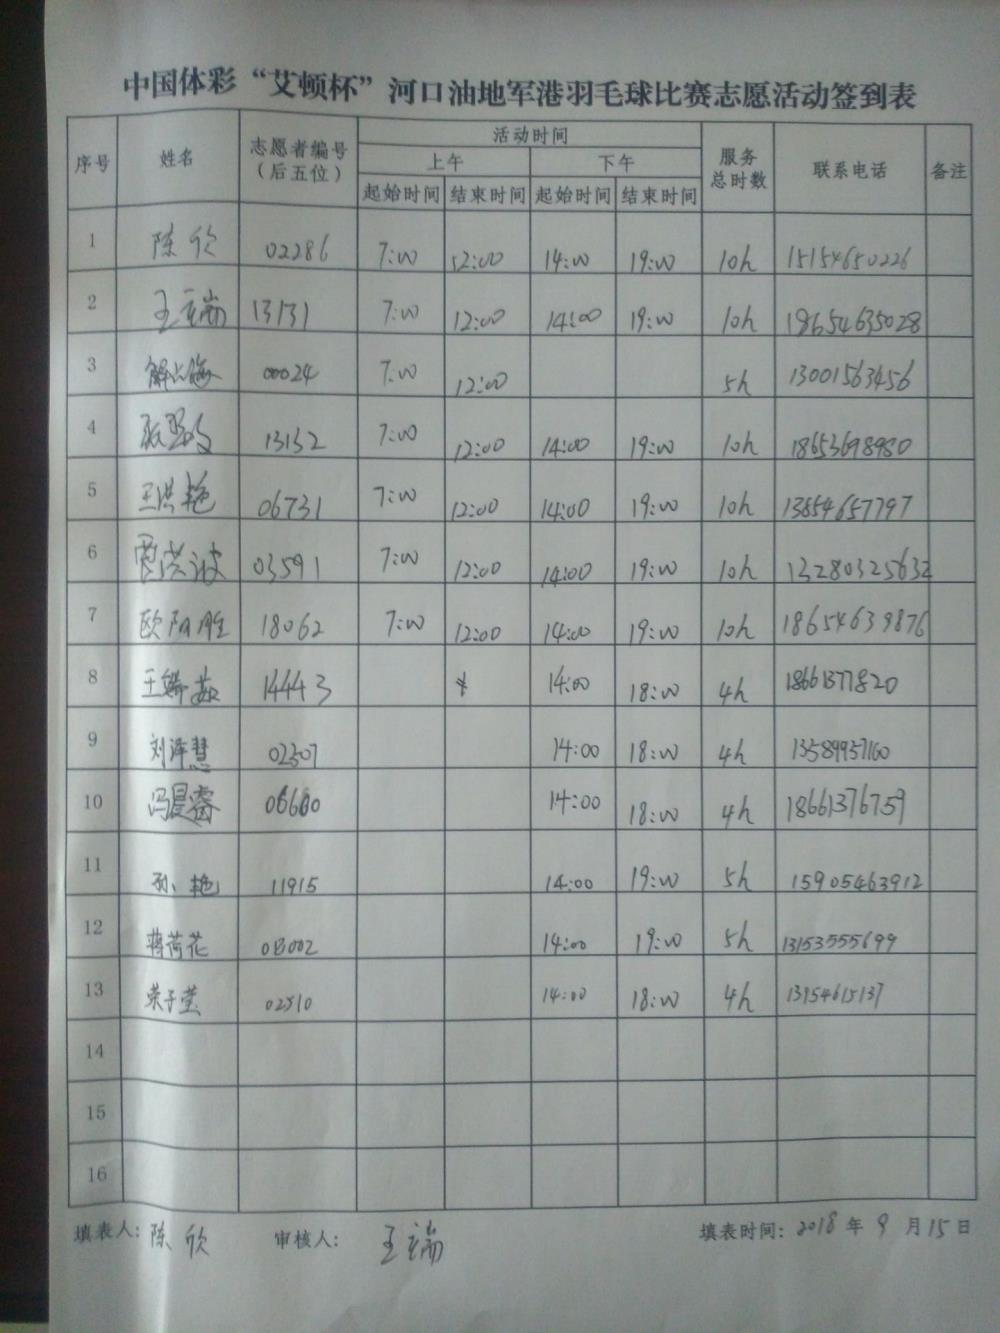 中国体彩“艾顿杯”河口油地军港羽毛球比赛志愿活动签到表
序号 姓名 志愿者编号（后五位） 活动时间 服务总时数 联系电话 备注
上午 下午
起始时间 结束时间 起始时间 结束时间
1 陈欣 02286 7:00 12:00 14:00 19:00 10h 15154650226
2 王瑞 13131 7:00 12:00 14:00 19:00 10h 18654635028
3 00024 7:00 12:00 5h 13001563456
4 13132 7:00 12:00 14:00 19:00 10h 18653698980
5 王洪艳 06731 7:00 12:00 14:00 19:00 10h 13854657797
6 贾洪波 03591 7:00 12:00 14:00 19:00 10h 13280325632
7 欧阳胜 18062 7:00 12:00 14:00 19:00 10h 18654639876
8 王 14443 14:00 18:00 4h 18661377820
9 刘泽慧 02307 14:00 18:00 4h 13589957160
10 冯晨睿 06600 14:00 18:00 4h 18661376759
11 孙艳 11915 14:00 19:00 5h 15905463912
12 蒋荷花 08002 14:00 19:00 5h 13153555699
13 荣子莹 02510 14:00 18:00 4h 13954615137
14
15
16
填表人：陈欣 审核人：王瑞 填表时间：2018年9月15日